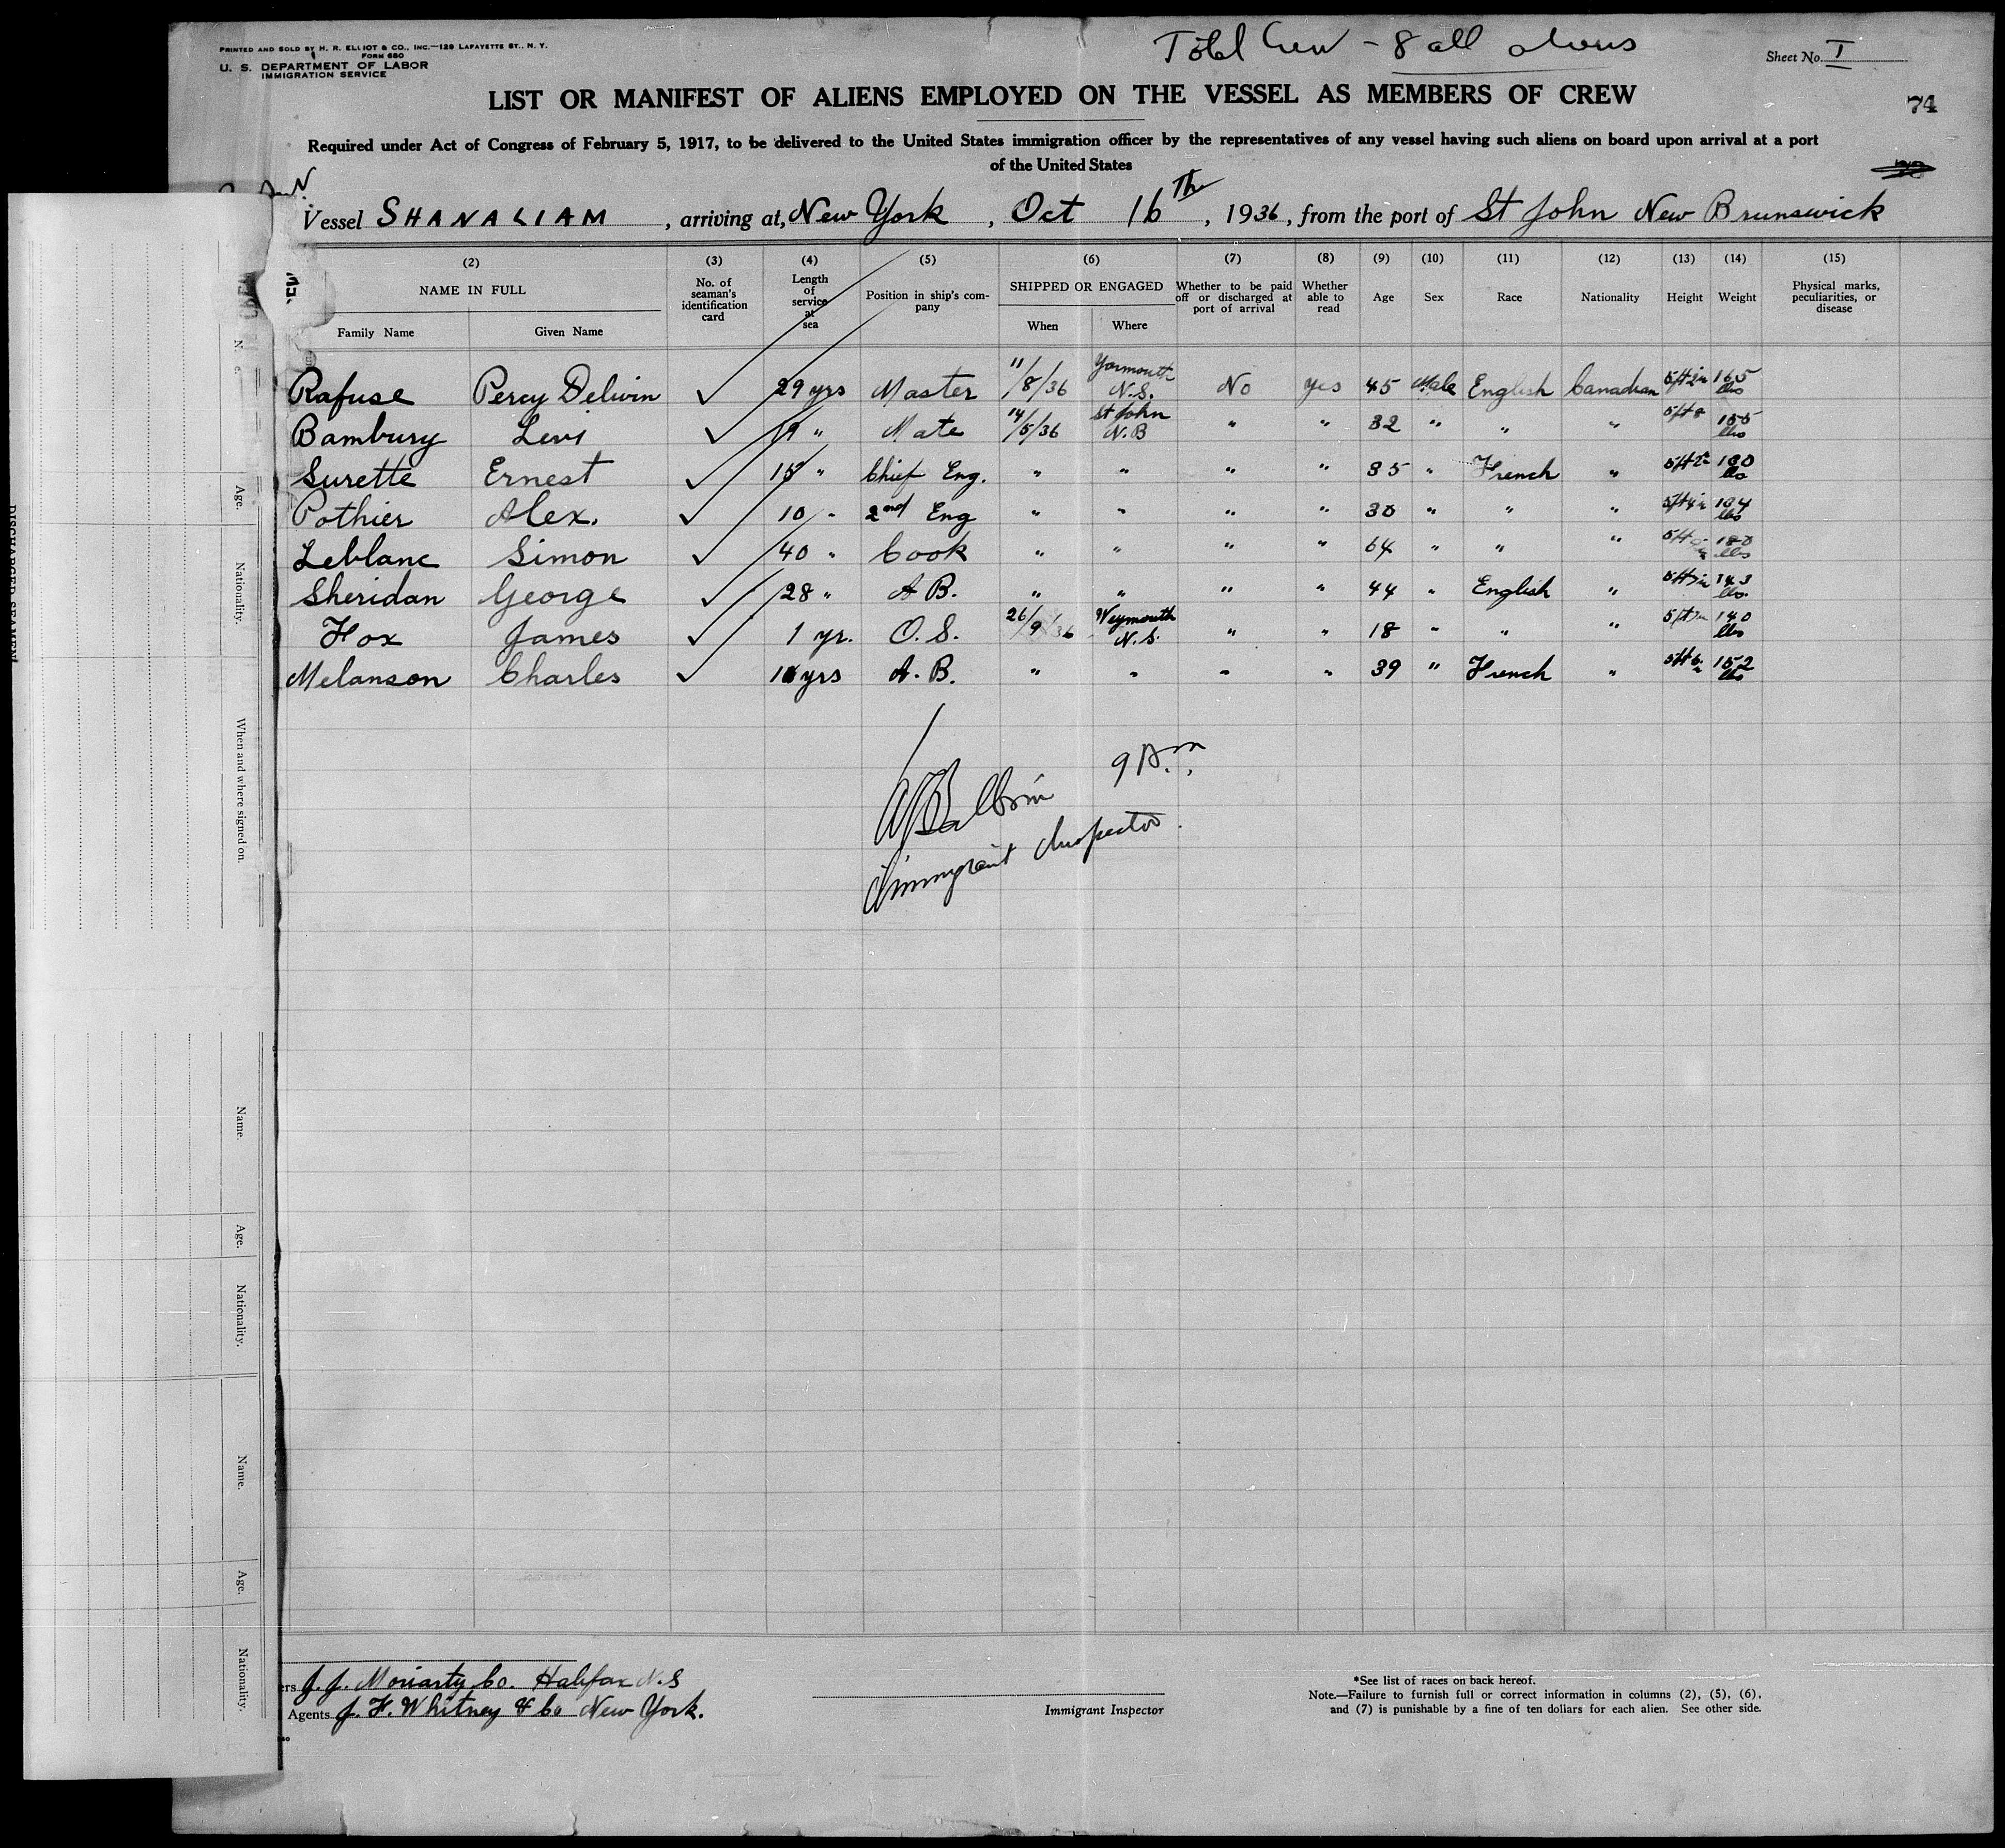 PRINTED AND SOLD BY H. R. ELLIOT & CO., INC.—129 LAFAYETTE ST., N. Y.
FORM 680
U. S. DEPARTMENT OF LABOR
IMMIGRATION SERVICE
Total Crew - 8 all aliens
Sheet No. I
LIST OR MANIFEST OF ALIENS EMPLOYED ON THE VESSEL AS MEMBERS OF CREW
74
Required under Act of Congress of February 5, 1917, to be delivered to the United States immigration officer by the representatives of any vessel having such aliens on board upon arrival at a port
of the United States
Vessel SHANALIAM, arriving at, New York, Oct 16th, 1936, from the port of St John New Brunswick
(2) (3) (4) (5) (6) (7) (8) (9) (10) (11) (12) (13) (14) (15)
NAME IN FULL No. of seaman's identification card Length of service at sea Position in ship's company SHIPPED OR ENGAGED Whether to be paid off or discharged at port of arrival Whether able to read Age Sex Race Nationality Height Weight Physical marks, peculiarities, or disease
Family Name Given Name When Where
Rafuse Percy Delwin ✓ 29 yrs Master 11/8/36 Yarmouth N.S. No yes 45 Male English Canadian 5ft 2in 165 lbs
Bambury Levi ✓ 19 " Mate 14/5/36 St John N.B " " 32 " " " 5ft 8 155 lbs
Surette Ernest ✓ 15 " Chief Eng. " " " " 35 " French " 180 lbs
Pothier Alex. ✓ 10 " 2nd Eng " " " " 30 " " " 5ft 4in lbs
Leblanc Simon ✓ 40 " Cook " " " " 64 " " " lbs
Sheridan George ✓ 28 " A B. " " " " 44 " English " 143 lbs.
Fox James ✓ 1 yr. O. S. 26/9/36 Weymouth N.S. " " 18 " " " 140 lbs
Melanson Charles ✓ yrs A. B. " " " " 39 " French " 152 lbs
9 A.m.
Immigrant Inspector.
J. J. Moriarty Co. Halifax N.S
Agents J. F. Whitney & Co New York.
Immigrant Inspector
*See list of races on back hereof.
Note.—Failure to furnish full or correct information in columns (2), (5), (6),
and (7) is punishable by a fine of ten dollars for each alien. See other side.
Age.
Nationality.
When and where signed on.
Name.
Age.
Nationality.
Name.
Age.
Nationality.